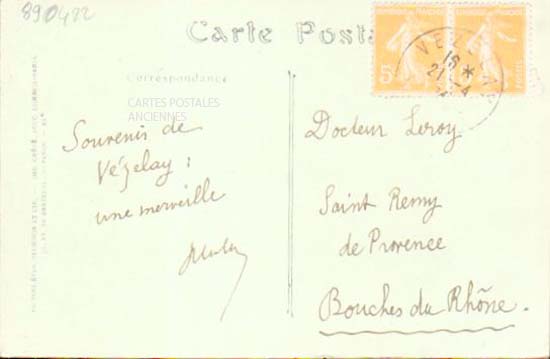 890482
Carte Posta
Correspondance
CARTES POSTALES
ANCIENNES
Souvenir de
Vézelay :
une merveille
Docteur Leroy
Saint Remy
de Provence
Bouches du Rhône.
5
VEZELAY
16 *
21 - 4
POSTES